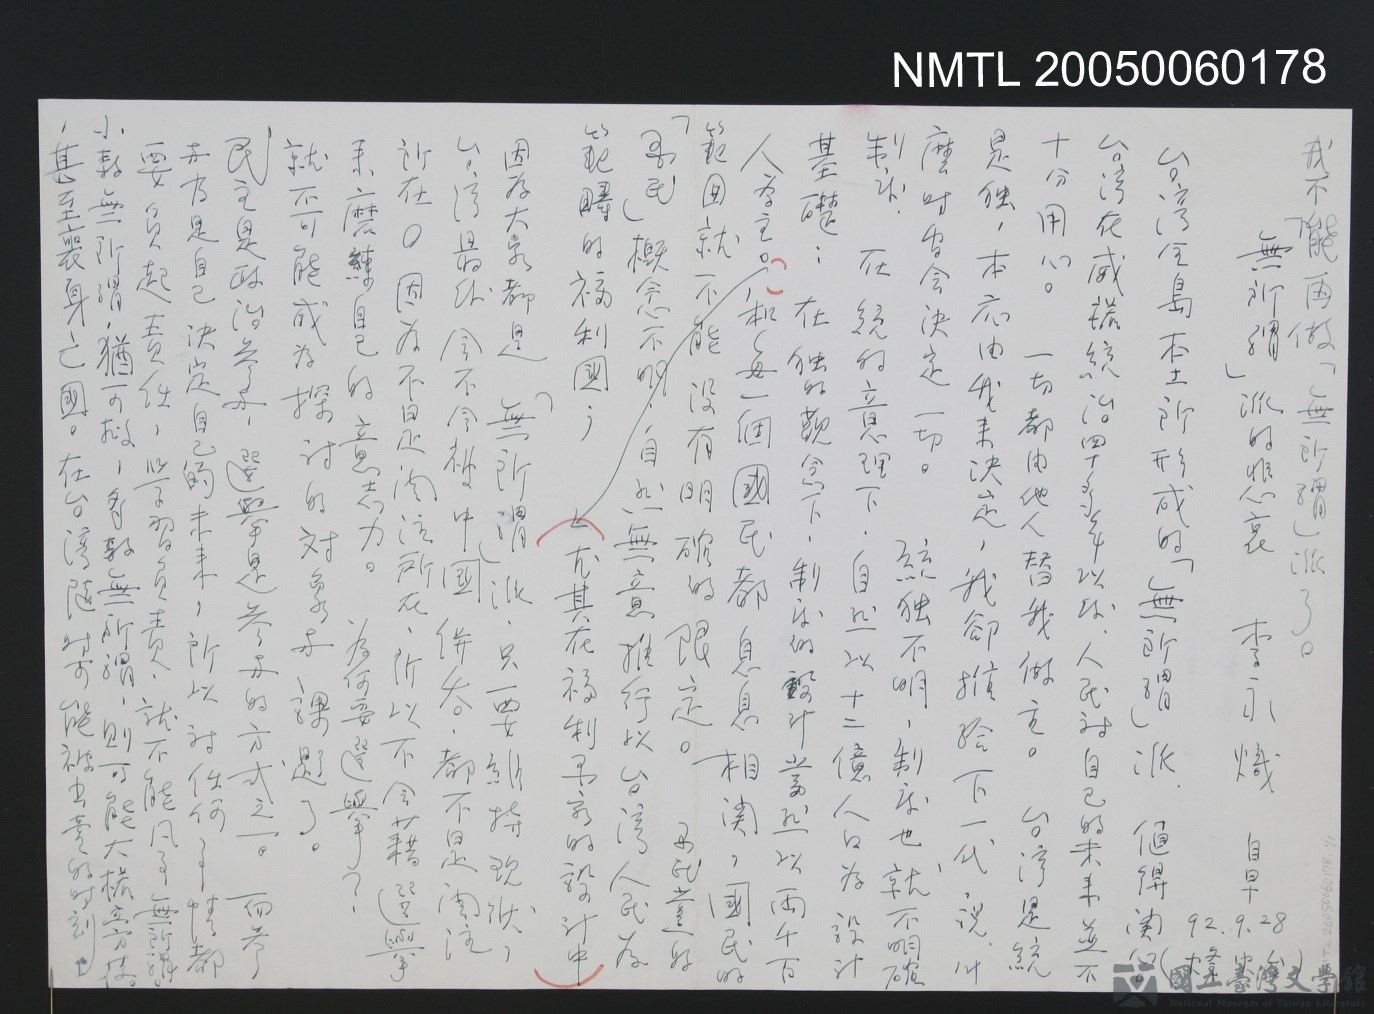 NMTL 20050060178
我不能再做「無所謂」派了。
無所謂」派的悲哀 李永熾 自早
92.9.28
台灣全島本土所形成的「無所謂」派,值得関心。
台灣在威權統治四十多年以後,人民対自己的未来並不
十分用心。一切都由他人替我做主。台湾是統
是独,本応由我来決定,我卻推給下一代,說,什
麼时会決定一切。統独不明,制度也就不明確
制度,在統的意思理下,自然以十二億人口為設計
基礎;在独的觀念下,制度的設計當然以兩千万
人為主。和每一個國民都息息相関,國民的
範囲就不能没有明確的限定。
国民」概念不明,自然無意推行以台湾人民為
範疇的福利國;尤其在福利国家的設計中
因為大家都是「無所謂」派,只要維持現状,
台湾最後会不会被中國併吞,都不是関注
所在。因為不是関注所在,所以不会藉選舉
来磨練自己的意志力。為何要選舉?
就不可能成為探討的対象与課題了。
民主是政治參与,選舉是參与的方式之一。而參
与乃是自己決定自己的未来,所以対任何事情都
要負起責任,以学習負責,就不能凡事無所謂。
小數無所謂,猶可救,多數無所謂,則可能大權旁落。
,甚至喪身亡國。在台湾隨時可能被出賣的时刻
國立臺灣文学館
National Museum of Taiwan Literature